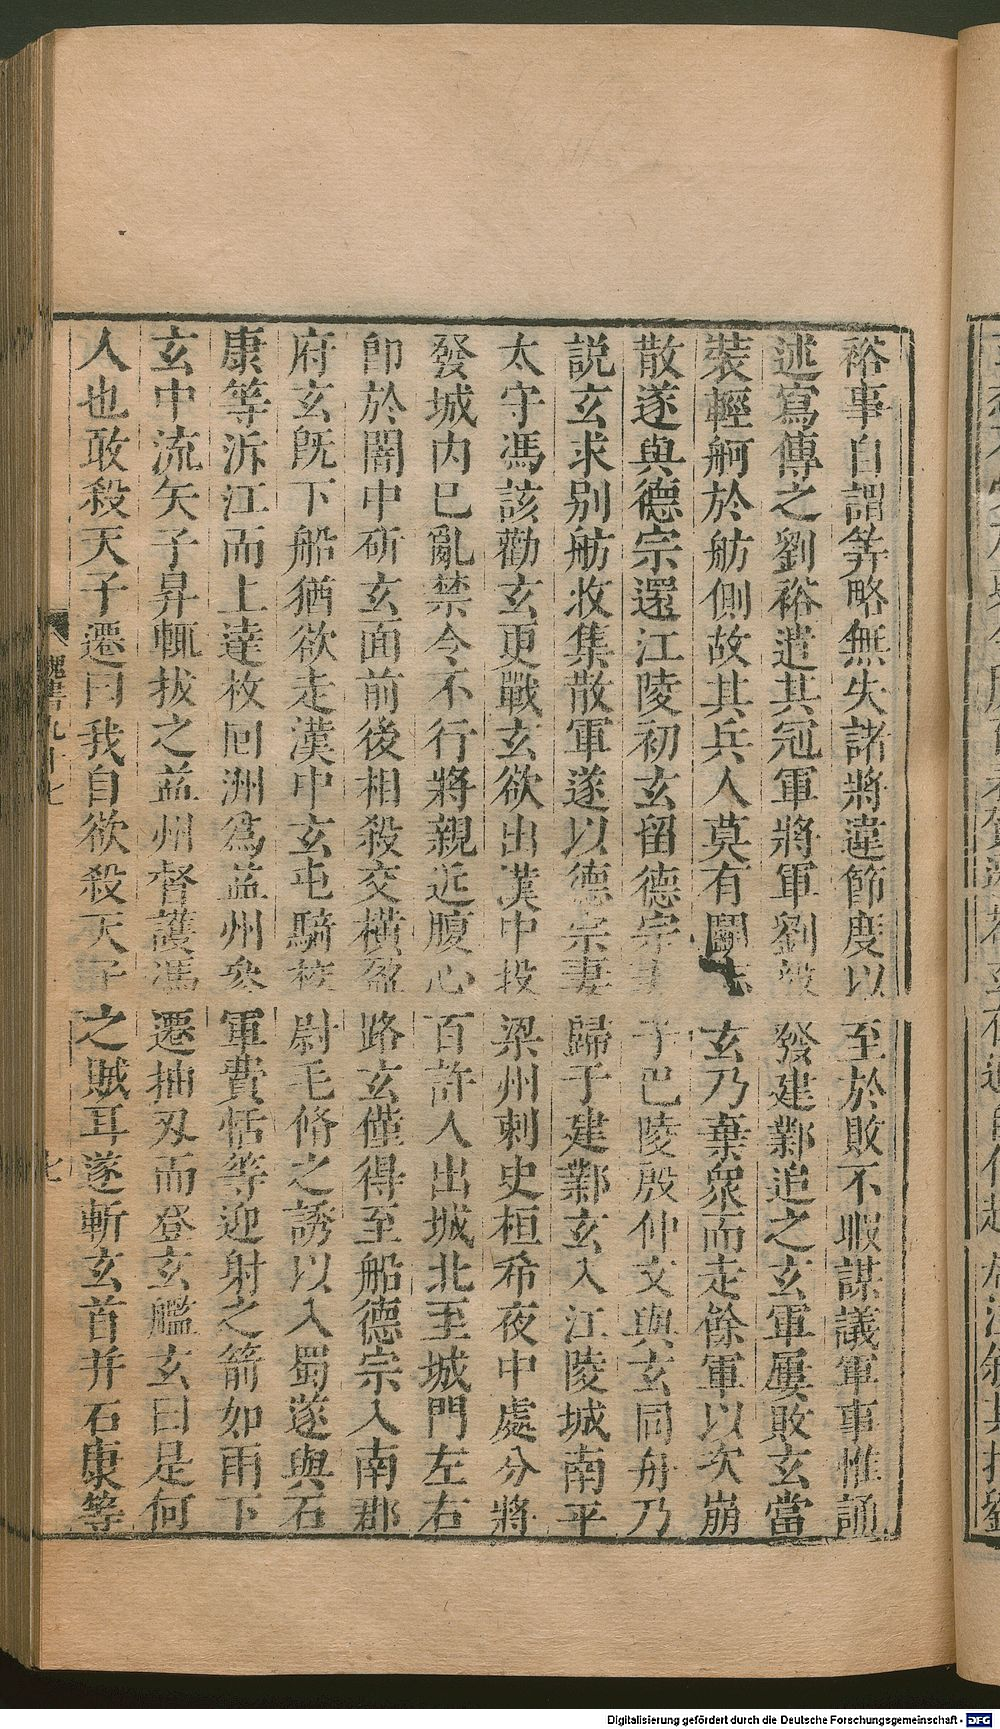 裕事自謂筭略無失諸將違節度以至於敗不暇謀議軍事惟誦
述寫傳之劉裕遣其冠軍將軍劉毅發建鄴追之玄軍屢敗玄當
裝輕舸於舫側故其兵人莫有鬬志玄乃棄衆而走餘軍以次崩
散遂與德宗還江陵初玄留德宗妻子巴陵殷仲文與玄同舟乃
説玄求别舫收集散軍遂以德宗妻歸于建鄴玄入江陵城南平
太守馮該勸玄更戰玄欲出漢中投梁州刺史桓希夜中處分將
發城内已亂禁令不行將親近腹心百許人出城北至城門左右
即於闇中斫玄面前後相殺交橫盈路玄僅得至船德宗入南郡
府玄既下船猶欲走漢中玄屯騎校尉毛脩之誘以入蜀遂與石
康等泝江而上達枚囘洲爲益州參軍費恬等迎射之箭如雨下
玄中流矢子昇輒拔之益州督護馮遷抽刄而登玄艦玄曰是何
人也敢殺天子遷曰我自欲殺天子之賊耳遂斬玄首并石康等
魏書九十七
七
Digitalisierung gefördert durch die Deutsche Forschungsgemeinschaft - DFG